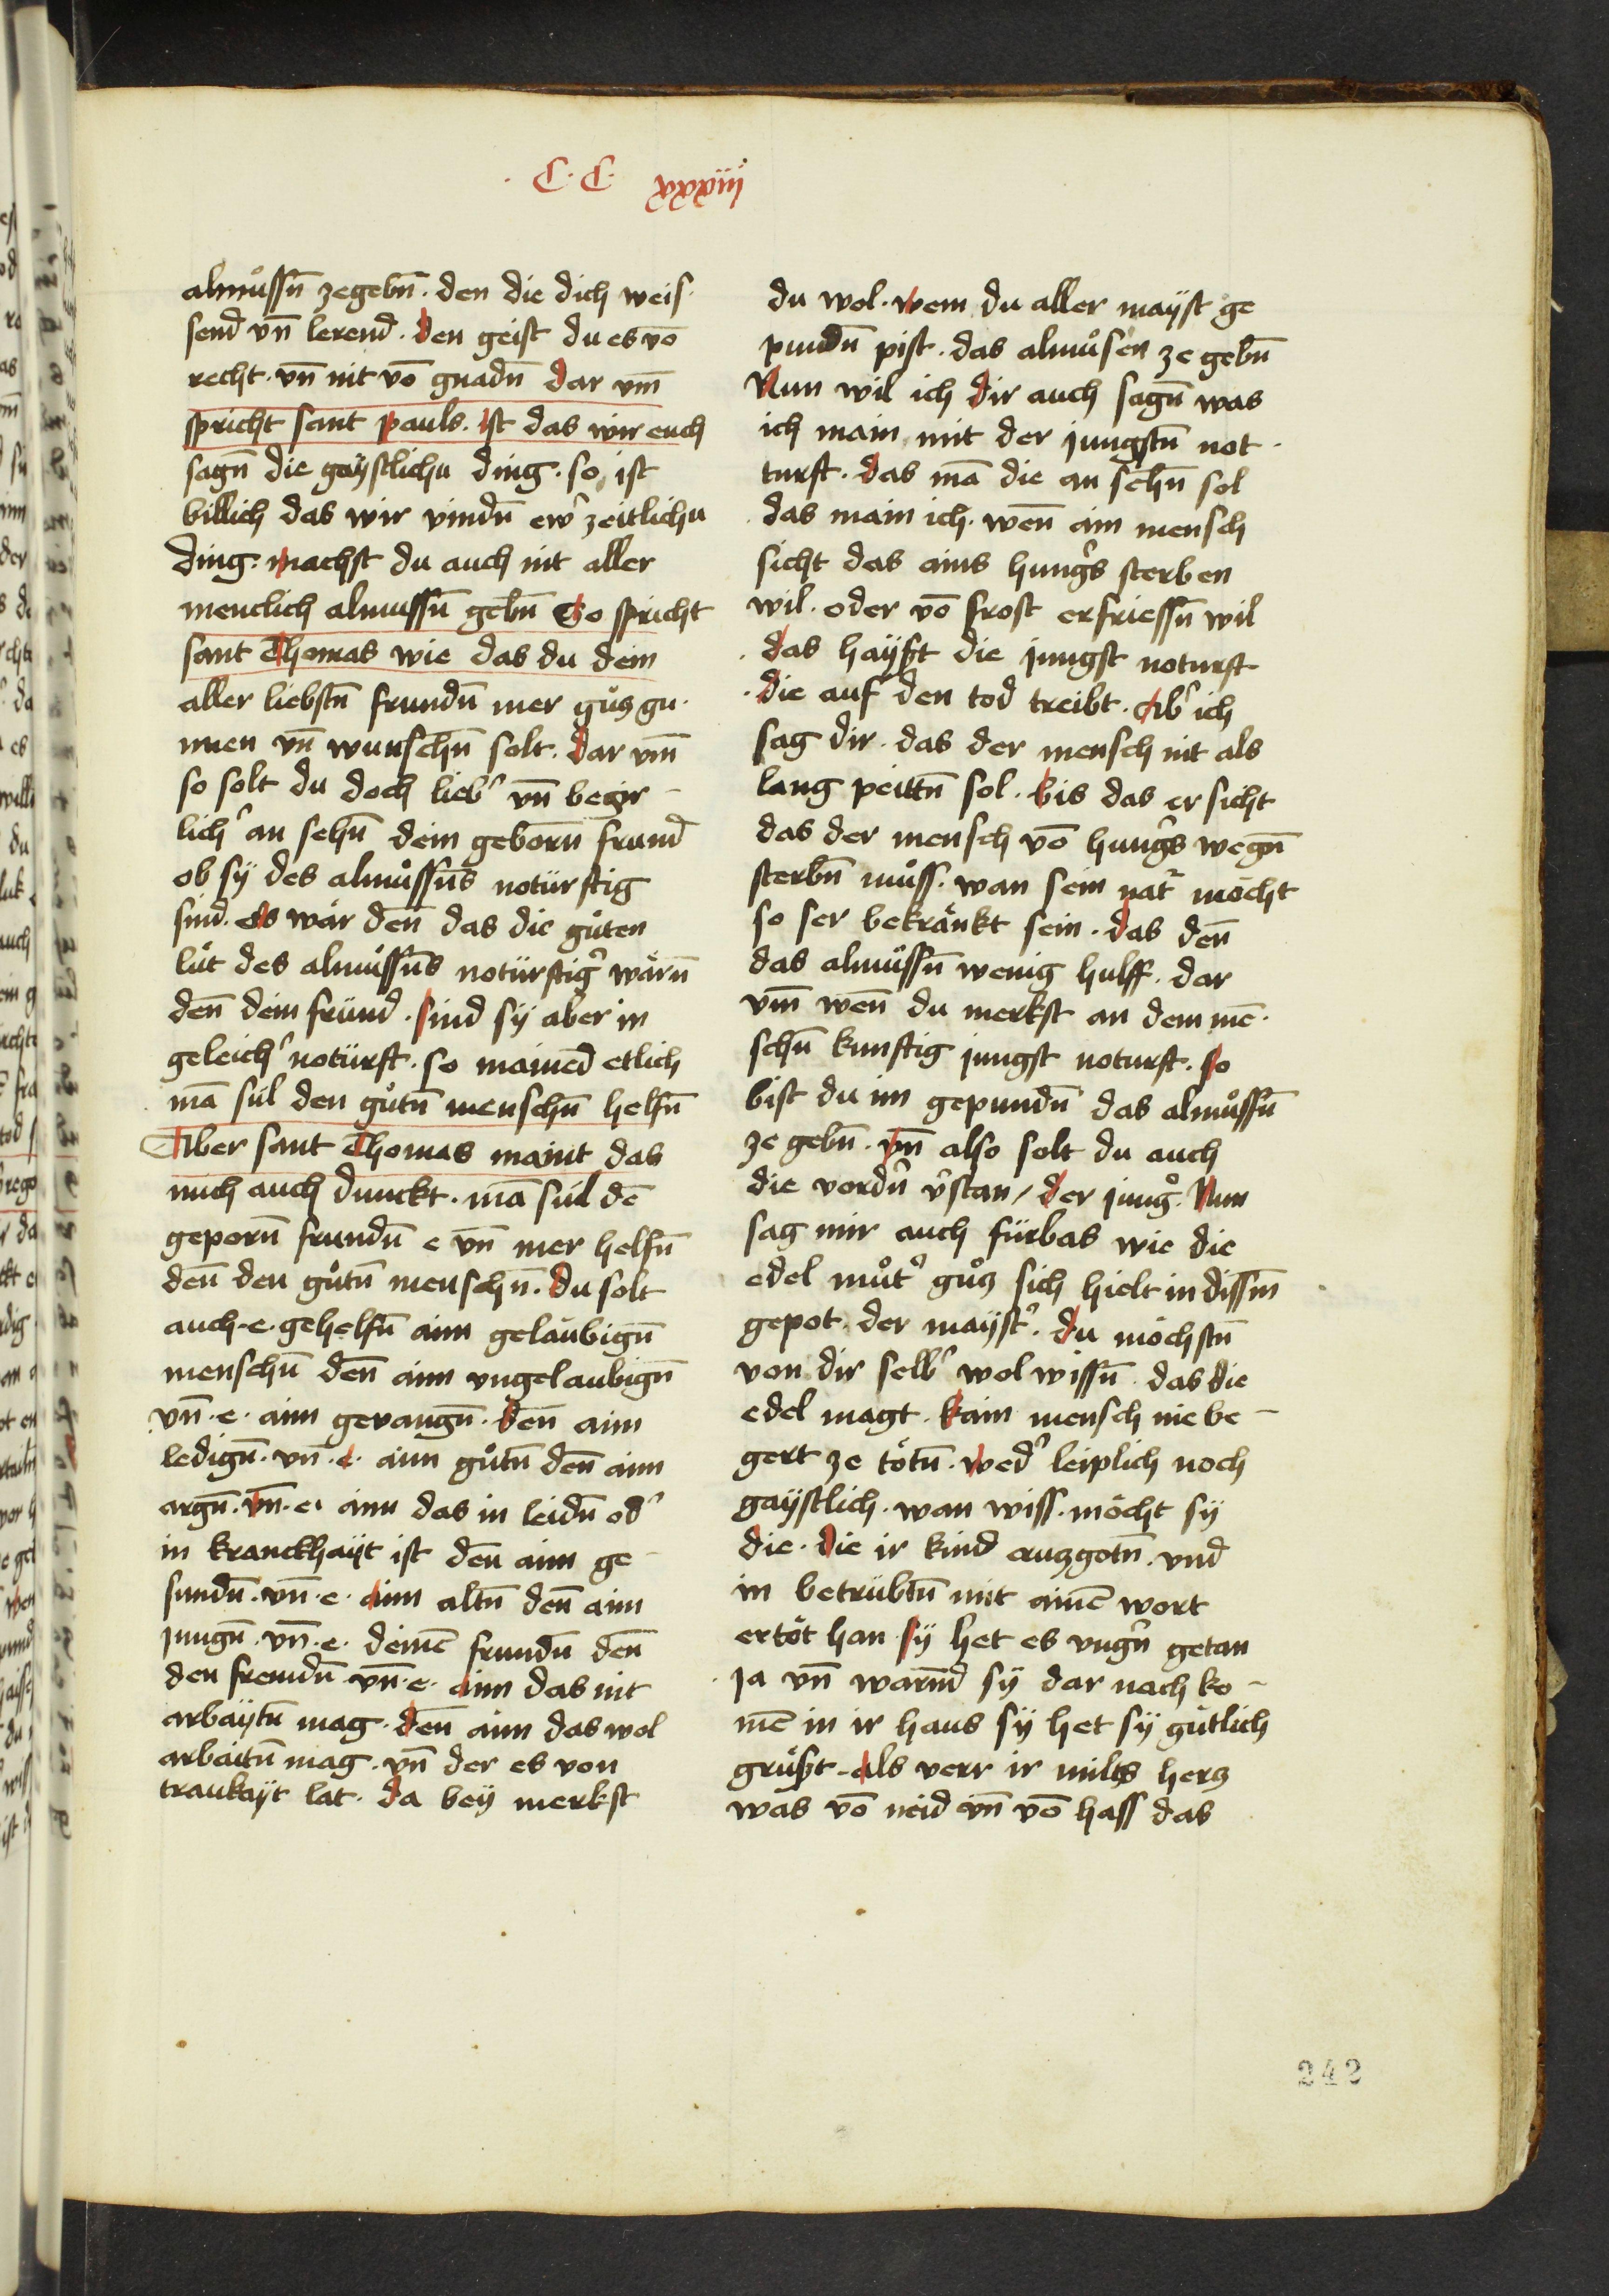 · C · C · xxxviij
almůssn̄ zegebn̄ · den die dich weis ·
send vn̄ lerend · den geist du es vō
recht · vn̄ nit vō gnadn̄ dar vm̄
spricht sant pauls · Ist das wir euch
sagn̄ die gaÿstlichn ding · so ist
billich das wir vindn̄ ewr̄ zeitlichn
ding · machst du auch nit aller
menclich almussn̄ gebn̄ So spricht
sant Thomas wie das du dein
aller liebstn̄ frundn̄ mer gůz gu ·
nnen vn̄ wunschn̄ solt · dar vm̄
so solt du doch lieb’ vn̄ begir –
lich’ an sehn̄ dein geborn̄ frund
ob sÿ des almůssn̄s notürftig
sind · es wär den̄ das die gůten
lüt des almůssn̄s notürftig’ wärn̄
den̄ dein fründ · sind sÿ aber in
geleich’ notürft · so mained etlich
mā sül den gůtn̄ menschn̄ helfn̄
Aber sant Thomas maint das
mich auch dunckt · mā sül dē
geporn̄ frundn̄ e vn̄ mer helfn̄
den̄ den gůtn̄ menschn̄ · du solt
auch · e · gehelfn̄ ainn gelaubign̄
menschn̄ den̄ ainn vngelaubign̄
vn̄ · e · ainn gevangn̄ · den̄ ainn
ledign̄ · vn̄ · e · ainn gůtn̄ den̄ ainn
argn̄ · vn̄ · e · ainn das in leidn̄ od’
in kranckhaÿt ist den̄ ainn ge –
sundn̄ · vn̄ · e · ainn altn̄ den̄ ainn
jungn̄ · vn̄ · e · deinē frundn̄ den̄
den fremdn̄ vn̄ · e · ainn das nit
arbaÿtn̄ mag · den̄ ainn das wol
arbaitn̄ mag · vn̄ der es von
traukaÿt lat · da beÿ merkst
du wol · wem du aller maÿst ge
pundn̄ pist · das almůsen ze gebn̄
Nun wil ich dir auch sagn̄ was
ich main mit der jungstn̄ not ·
turft · das mā die an sehn̄ sol
das main ich · wen̄ ain mensch
sicht das ains hung’s sterben
wil · oder vō frost erfriessn̄ wil
das haÿßt die jungst noturft
· die auf den tod treibt · Ab’ ich
sag dir · das der mensch nit als
lang peittn̄ sol · bis das er sicht
das der mensch vō hung’s wegn̄
sterbn̄ můss · wan sein nat’ möcht
so ser bekränkt sein · das den̄
das almůssn̄ wenig hulff · dar
vm̄ wen̄ du merkst an dem mē ·
schn̄ kunftig jungst noturft · so
bist du im gepundn̄ das almůssn̄
ze gebn̄ · vn̄ also solt du auch
die vordn̄ v’stan / der jung’ · Nun
sag mir auch fürbas wie die
edel můt’ gůz sich hielt in dissm̄
gepot · der maÿst’ · du möchstn̄
von dir selb’ wol wissn̄ · das die
edel magt · kain mensch nie be –
gert ze tötn̄ · wed’ leiplich noch
gaÿstlich · wan wiss · möcht sÿ
die · die ir kind cruzgotn̄ · vnd
in betrübtn̄ mit ainē wort
ertöt han sÿ het es vngn̄ getan
ja vn̄ warnd sÿ dar nach ko –
mē in ir haus sÿ het sÿ gütlich
grüßt – als verr ir miltz herz
was vō neid vn̄ vō hass das
242